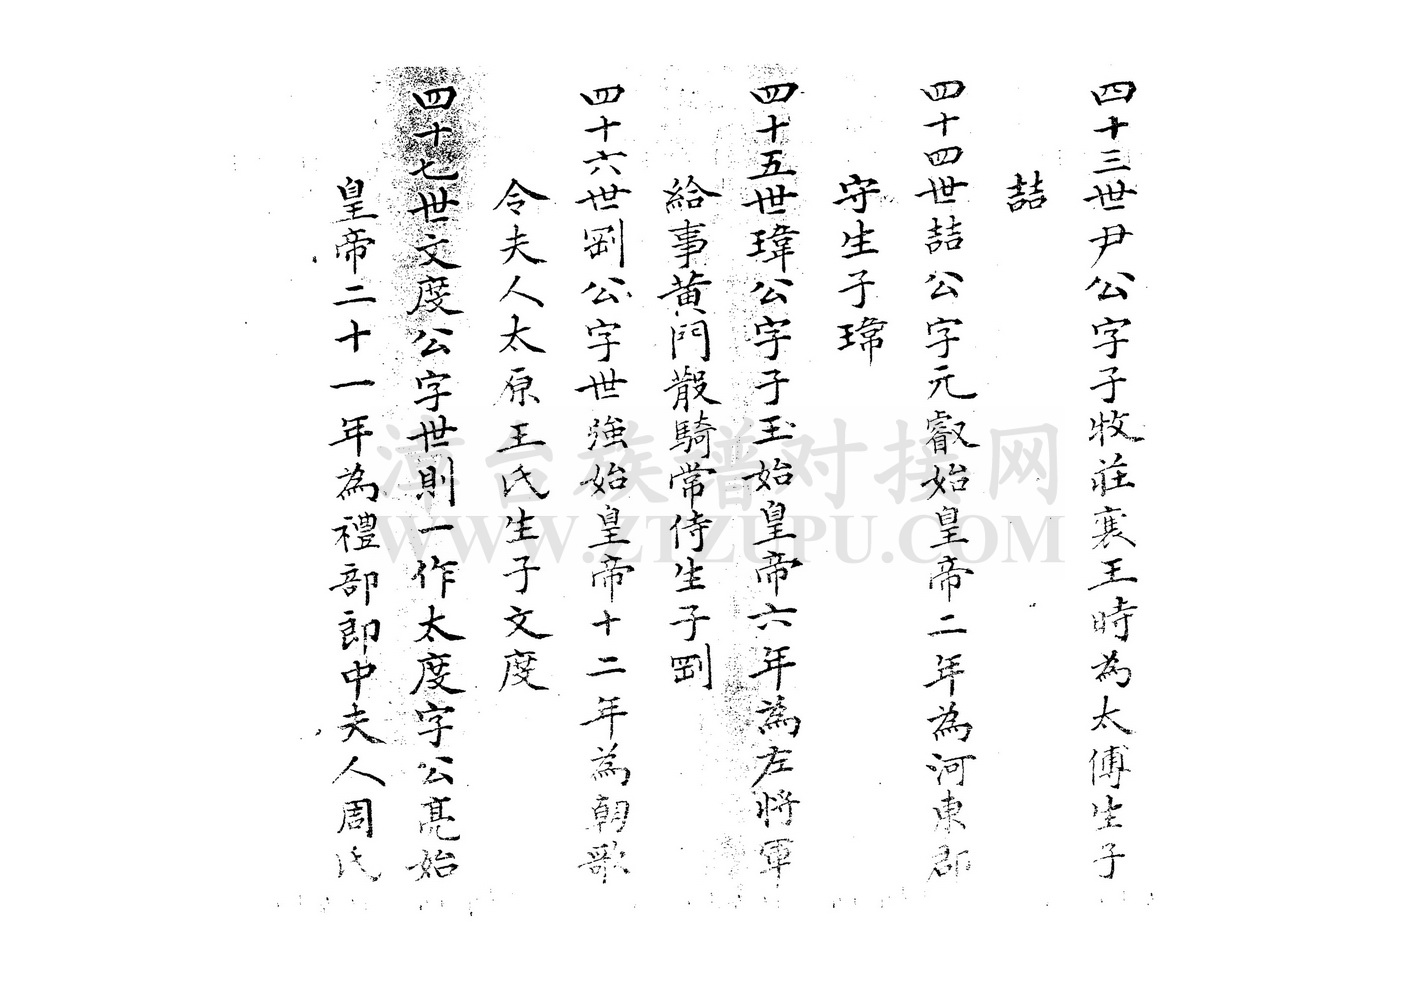 四十三世尹公字子牧莊襄王時為太傅生子
喆
四十四世喆公字元叡始皇帝二年為河東郡
守生子瑋
四十五世瑋公字子玉始皇帝六年為左將軍
給事黃門散騎常侍生子剛
四十六世剛公字世強始皇帝十二年為朝歌
令夫人太原王氏生子文度
四十七世文度公字世則一作太度字公亮始
皇帝二十一年為禮部郎中夫人周氏
漳台族谱对接网
WWW.ZTZUPU.COM